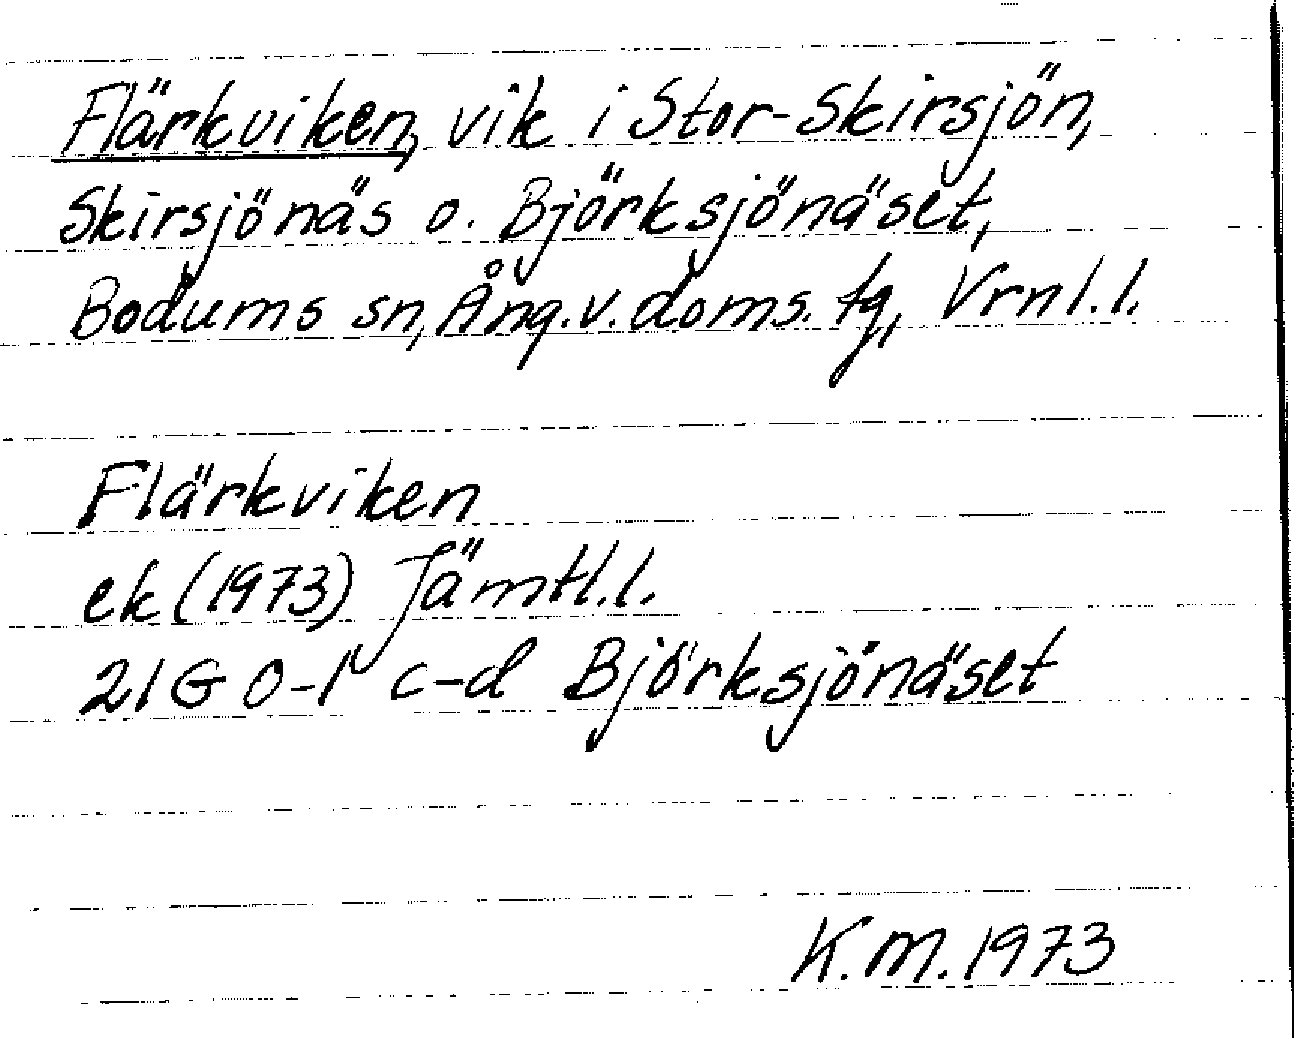 Flärkviken, vik i Stor-Skirsjön,
Skirsjönäs o. Björksjönäset,
Bodums sn, Ång.v.doms. tg, Vrnl.l.
Flärkviken
ek (1973) Jämtl.l.
21G 0-1 c-d Björksjönäset
K.M. 1973